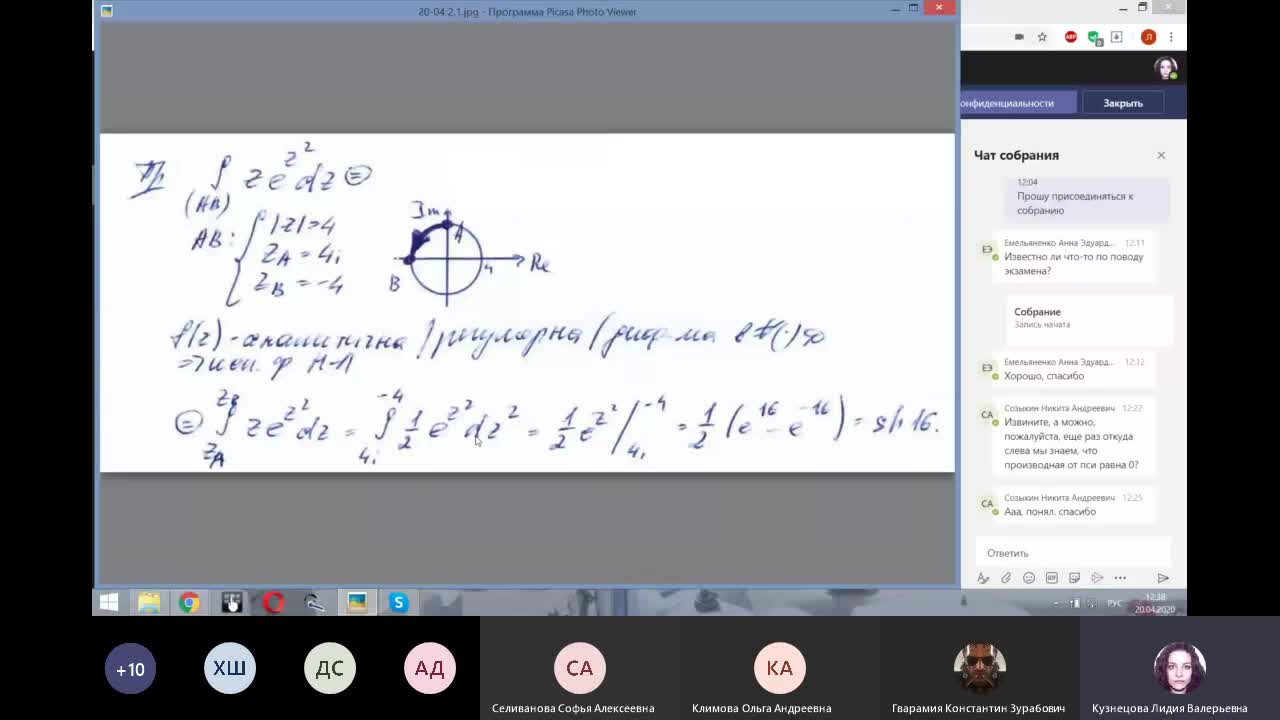 20-04 2.1.jpg - Программа Picasa Photo Viewer
Пр ∫ z e^{z^2} dz =
(AB)
AB: { |z|=4
z_A = 4i
z_B = -4
Im
A
B
4
Re
f(z) - аналитична / регулярна /
=> исп. ф. Н-Л
= ∫_{z_A}^{z_B} z e^{z^2} dz = ∫_{4i}^{-4} 1/2 e^{z^2} dz^2 = 1/2 e^{z^2} |_{4i}^{-4} = 1/2 (e^{16} - e^{-16}) = sh 16.
онфиденциальности
Закрыть
Чат собрания
12:04
Прошу присоединяться к
собранию
ЕЭ
Емельяненко Анна Эдуард... 12:11
Известно ли что-то по поводу
экзамена?
Собрание
Запись начата
ЕЭ
Емельяненко Анна Эдуард... 12:12
Хорошо, спасибо
СА
Созыкин Никита Андреевич 12:22
Извините, а можно,
пожалуйста, еще раз откуда
слева мы знаем, что
производная от пси равна 0?
СА
Созыкин Никита Андреевич 12:25
Ааа, понял. спасибо
Ответить
РУС
12:38
20.04.2020
+10
ХШ
ДС
АД
СА
КА
Селиванова Софья Алексеевна
Климова Ольга Андреевна
Гварамия Константин Зурабович
Кузнецова Лидия Валерьевна